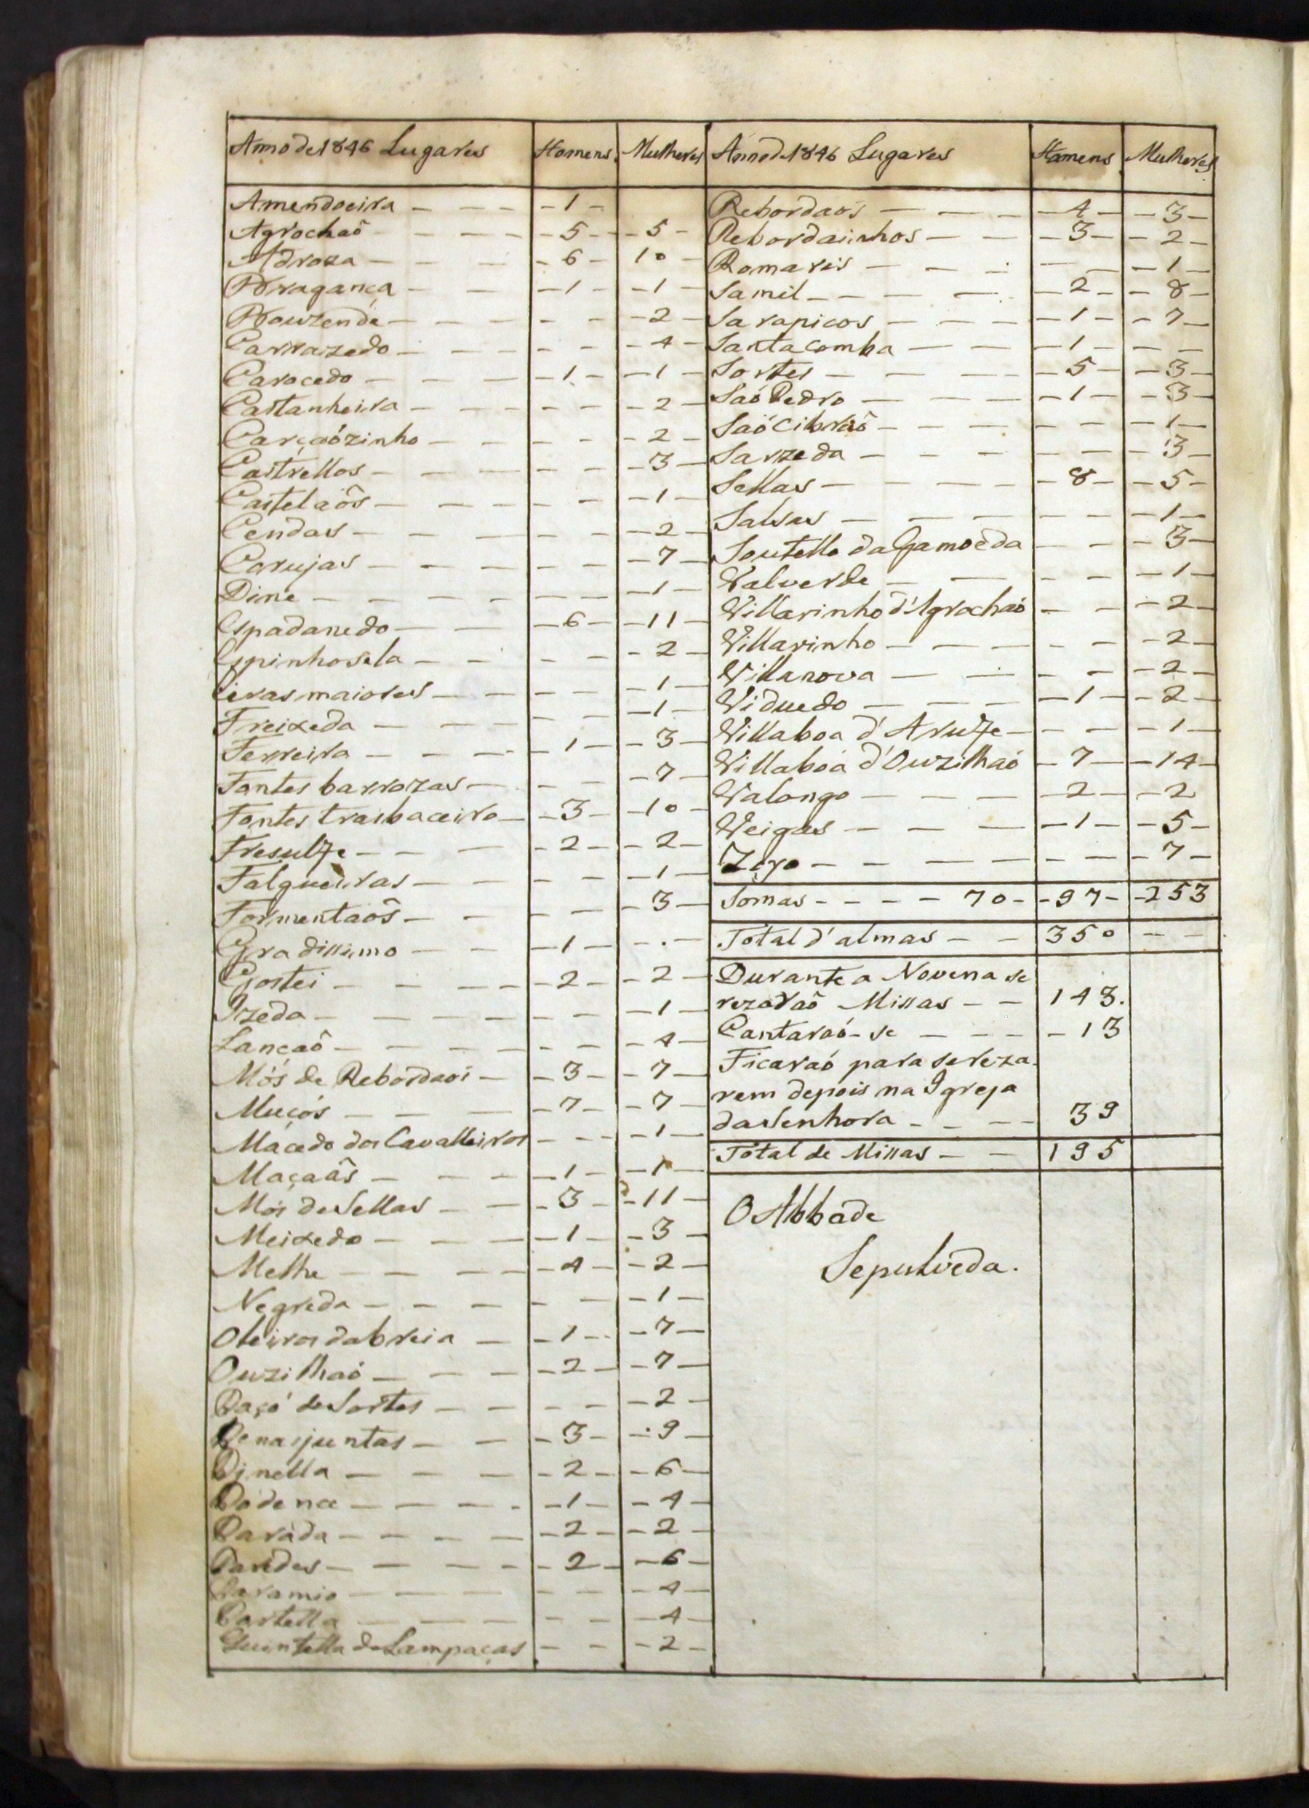 Anno de 1846 Lugares Homens Mulheres
Amendoeira - - - - 1 -
Agrochaõ - - - - 5 - - 5 -
Adroza - - - - 6 - 10 -
Bragança - - - - 1 - - 1 -
Bouzende - - - - - - 2 -
Carrazedo - - - - - - 4 -
Carocedo - - - - 1 - - 1 -
Castanheira - - - - - - 2 -
Carçaózinho - - - - - - 2 -
Castrellos - - - - - - 3 -
Castelaõs - - - - - - 1 -
Cendas - - - - - - 2 -
Corujas - - - - - - 7 -
Dine - - - - - - 1 -
Espadanedo - - - 6 - - 11 -
Espinhosela - - - - - 2 -
Eiras maiores - - - - - 1 -
Freixeda - - - - - - 1 -
Ferreira - - - - 1 - - 3 -
Fontes barrozas - - - - - 7 -
Fontes trasbaceiro - - 3 - - 10 -
Fresulfe - - - - 2 - - 2 -
Falgueiras - - - - - 1 -
Formentaõs - - - - - 3 -
Gradissimo - - - 1 - - . -
Gostei - - - - 2 - - 2 -
Izeda - - - - - - 1 -
Lançaõ - - - - - - 4 -
Mós de Rebordaos - - 3 - - 7 -
Muçós - - - - 7 - - 7 -
Macedo dos Cavalleiros - - - 1 -
Maçaãs - - - - 1 - - 1 -
Mós de Sellas - - - 3 - - 11 -
Meixedo - - - - 1 - - 3 -
Melhe - - - - 4 - - 2 -
Negreda - - - - - - 1 -
Oleiros dabreia - - 1 - - 7 -
Ouzilhaó - - - - 2 - - 7 -
Paçó de Sortes - - - - - 2 -
Penasjuntas - - - 3 - - 9 -
Pinella - - - - 2 - - 6 -
Podence - - - - 1 - - 4 -
Parada - - - - 2 - - 2 -
Paredes - - - - 2 - - 6 -
Paramio - - - - - - 4 -
Portella - - - - - - 4 -
Quintella de Lampaças - - - 2 -
Anno de 1846 Lugares Homens Mulheres
Rebordaos - - - 4 - - 3 -
Rebordainhos - - - 3 - - 2 -
Romareis - - - - - - 1 -
Samil - - - - 2 - - 8 -
Sarapicos - - - - 1 - - 7 -
Santa Comba - - - 1 - - -
Sortes - - - - 5 - - 3 -
Saó Pedro - - - - 1 - - 3 -
Saó Cibraõ - - - - - 1 -
Sarzeda - - - - - - 3 -
Sellas - - - - 8 - - 5 -
Salsas - - - - - - 1 -
Soutello da Gamoeda - - - 3 -
Valverde - - - - - 1 -
Villarinho d'Agrochaó - - - 2 -
Villarinho - - - - - 2 -
Villanova - - - - - 2 -
Viduedo - - - - 1 - - 2 -
Villaboa d'Arufe - - - - 1 -
Villaboa d'Ouzilhaó - 7 - - 14 -
Valongo - - - - 2 - - 2
Veigas - - - - 1 - - 5 -
Zoyo - - - - - - 7 -
Somas - - - - 70 - - 97 - - 253
Total d'almas - - 350 - -
Durante a Novena se
rezaraõ Missas - - 143.
Cantaraó-se - - - - 13
Ficaraó para se reza-
rem depois na Igreja
da Senhora - - - - 39
Total de Missas - - 195
O Abbade
Sepulveda.